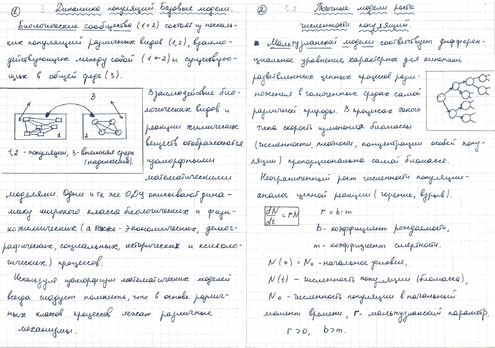 ①
Динамика популяций. Базовые модели.
Биологические сообщества (1+2) состоят из нескольких
популяций различных видов (1,2), взаимо-
действующих между собой (1↔2) и существую-
щих в общей среде (3).
3
1
2
1,2 - популяции, 3 - внешняя среда
Взаимодействие био-
логических видов и
реакции химических
веществ отображаются
изоморфными
математическими
моделями. Одни и те же ОДУ описывают дина-
мику широкого класса биологических и физи-
кохимических (а также - экономических, демог-
рафических, социальных, исторических и психоло-
гических) процессов.
Используя изоморфизм математических моделей
всегда следует помнить, что в основе различ-
ных классов процессов лежат различные
механизмы.
②
Точечные модели роста
численности популяций.
Мальтузианская модель соответствует дифферен-
циальное уравнение, характерное для кинетики
разветвлённых цепных процессов разм-
ножения в гомогенных средах самой
различной природы. В процессах такого
типа скорость изменения биомассы
(численности, плотности, концентрации особей попу-
ляции) пропорциональна самой биомассе.
Неограниченный рост численности популяции -
аналог цепной реакции (горение, взрыв).
dN/dt = rN
r = b - m
b - коэффициент рождаемости,
m - коэффициент смертности.
N(0) = N₀ - начальное условие,
N(t) - численность популяции (биомасса),
N₀ - численность популяции в начальный
момент времени, r - мальтузианский параметр,
r > 0, b > m.